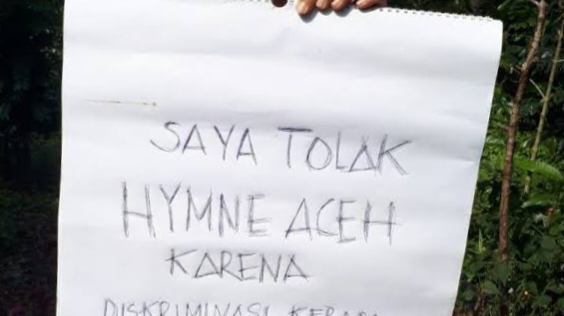 SAYA TOLAK
HYMNE ACEH
KARENA
DISKRIMINASI